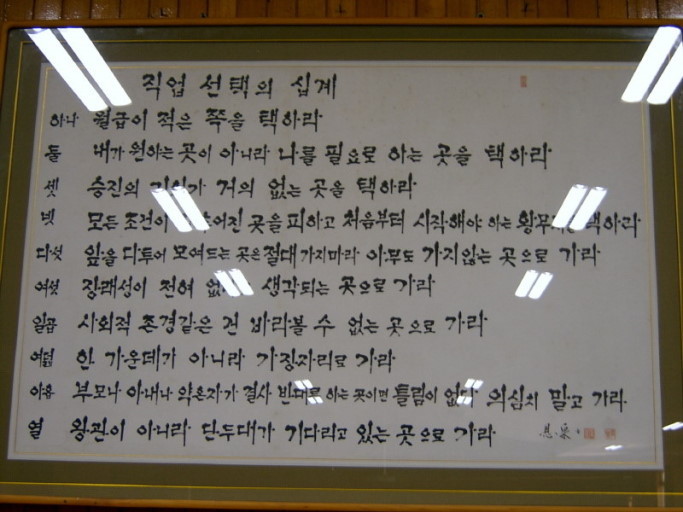 직업 선택의 십계
하나 월급이 적은 쪽을 택하라
둘 내가 원하는 곳이 아니라 나를 필요로 하는 곳을 택하라
셋 승진의 기회가 거의 없는 곳을 택하라
넷 모든 조건이 곳을 피하고 처음부터 시작해야 하는 택하라
다섯 앞을 다투어 모여드는 곳은 절대 가지마라 아무도 가지않는 곳으로 가라
여섯 장래성이 전혀 생각되는 곳으로 가라
일곱 사회적 존경같은 건 바라볼 수 없는 곳으로 가라
여덟 한 가운데가 아니라 가장자리로 가라
아홉 부모나 아내나 약혼자가 결사 반대로 하는 곳이면 틀림이 없다 의심치 말고 가라
열 왕관이 아니라 단두대가 기다리고 있는 곳으로 가라